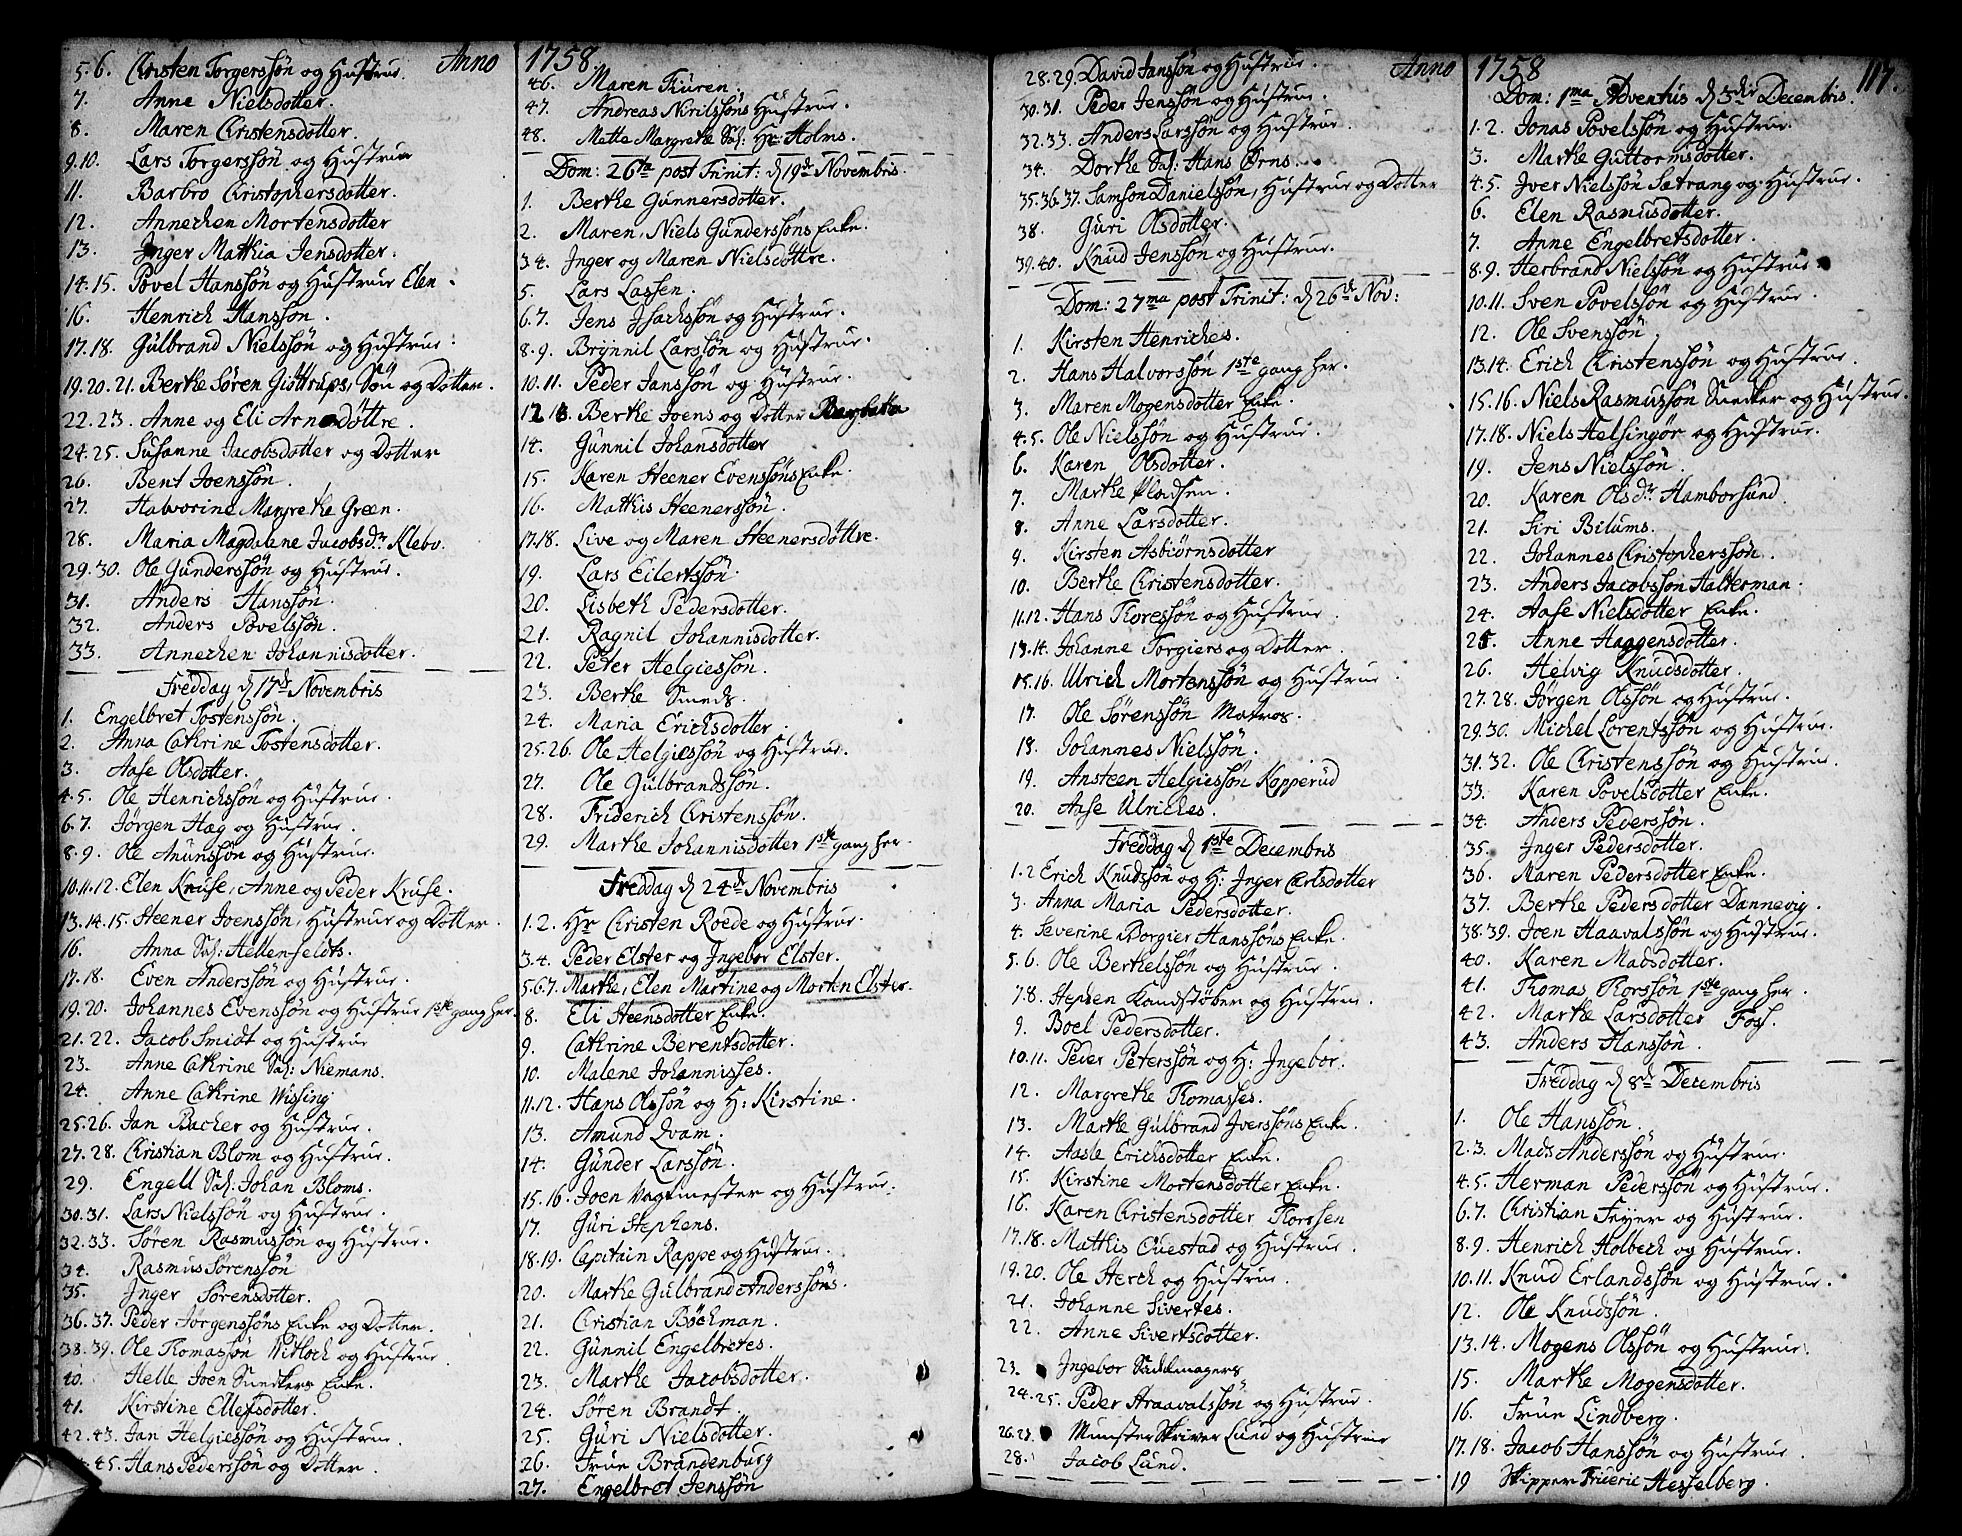 Anno 1758.
5.6. Christen Torgerssön og Hustrue.
7. Anne Nielsdotter.
8. Maren Christensdotter.
9.10. Lars Torgerssön og Hustrue
11. Barbro Christophersdotter.
12. Annechen Mortensdotter
13. Inger Mathia Jensdotter.
14.15. Povel Hanssön og Hustrue Elen.
16. Henrich Hanssön.
17.18. Gülbrand Nielssön og Hustrue:
19.20.21. Berthe Sören Giöttrups, Sön og Dotter.
22.23. Anne og Eli Arnesdöttre.
24.25. Susanne Jacobsdotter og Dotter
26. Bent Joenssön.
27. Halvorine Margrethe Green.
28. Maria Magdalene Jacobsdr. Klebo.
29.30. Ole Gunderssön og Hustrue.
31. Anders Hanssön.
32. Anders Povelssön.
33. Annechen Johannisdotter.
Freddag d 17de Novembris
1. Engelbret Tostenssön.
2. Anna Cathrine Tostensdotter.
3. Aase Olsdotter.
4.5. Ole Henrichssön og Hustrue.
6.7. Jörgen Hæg og Hustrue.
8.9. Ole Anunssön og Hustrue.
10.11.12. Elen Kruse, Anne og Peder Kruse.
13.14.15. Steener Joenssön, Hustrue og Dotter.
16. Anna Sal: Hellenfeldts.
17.18. Even Anderssön og Hustrue.
19.20. Johannes Evenssön og Hustrue 1ste gang her.
21.22. Jacob Smidt og Hustrue
23. Anne Cathrine Sal: Niemans.
24. Anne Cathrine Wissing
25.26. Jan Bacher og Hustrue.
27.28. Christian Blom og Hustrue.
29. Engell Sal: Johan Bloms.
30.31. Lars Nielssön og Hustrue.
32.33. Sören Rasmussön og Hustrue.
34. Rasmus Sörenssön
35. Inger Sörensdotter.
36.37. Peder Jörgenssöns Enke og Dotter.
38.39. Ole Thomassön Witloch og Hustrue
40. Helle Joen Snedkers Enke.
41. Kirstine Ellefsdotter.
42.43. Jan Helgiessön og Hustrue.
45. Hans Pederssön og Dotter.
46. Maren Küren.
47. Andreas Nirilssöns Hustrue.
48. Mette Margrethe Sal: Hr Holms.
Dom: 26ta post Trinit: d 19de Novembris.
1. Berthe Gunnersdotter.
2. Maren, Niels Gunderssöns Enke.
3.4. Inger og Maren Nielsdöttre.
5. Lars Lassen.
6.7. Jens Isachssön og Hustrue.
8.9. Brynnil Larssön og Hustrue.
10.11. Peder Janssön og Hustrue.
12.13. Berthe Joens og Dotter Barbara
14. Gunnil Johansdotter
15. Karen Steener Evenssöns Enke.
16. Mathis Steenerssön.
17.18. Live og Maren Steenersdöttre.
19. Lars Eilertssön.
20. Lisbeth Pedersdotter.
21. Ragnil Johannisdotter.
22. Peter Helgiessön.
23. Berthe Smeds.
24. Maria Erichsdotter.
25.26. Ole Helgiessön og Hustrue.
27. Ole Gulbrandssön.
28. Friderich Christenssön.
29. Marthe Johannisdotter 1ste gang her.
Freddag d 24de Novembris
1.2. Hr Christen Roede og Hustrue.
3.4. Peder Elster og Ingebor Elster.
5.6.7. Marthe, Elen Martine og Morten Elster.
8. Eli Steensdotter Enke.
9. Cathrine Berentsdotter.
10. Malene Johannisses.
11.12. Hans Olssön og H: Kirstine.
13. Amund Qvam.
14. Günder Larssön.
15.16. Joen Vagtmester og Hustrue.
17. Guri Stephens.
18.19. Capitain Rappe og Hustrue.
20. Marthe Gulbrand Anderssöns.
21. Christian Böckman.
22. Günnil Engelbretes.
23. Marthe Jacobsdotter.
24. Sören Brandt.
25. Guri Nielsdotter.
26. Frue Brandenburg
27. Engelbret Jenssön
Anno 1758 117.
28.29. David Janssön og Hustrue.
30.31. Peder Jenssön og Hustrue.
32.33. Anders Larssön og Hustrue.
34. Dorthe Sal: Hans Örns.
35.36.37. Samson Danielssön, Hustrue og Dotter
38. Guri Olsdotter.
39.40. Knud Jenssön og Hustrue.
Dom: 27ma post Trinit: d 26de Nov:
1. Kirsten Henriches.
2. Hans Halvorssön 1ste gang her.
3. Maren Mogensdotter Enke.
4.5. Ole Nielssön og Hustrue.
6. Karen Olsdotter.
7. Marthe Pladsen.
8. Anne Larsdotter.
9. Kirsten Asbiörnsdotter
10. Berthe Christensdotter.
11.12. Hans Thoressön og Hustrue.
13.14. Johanne Torgiers og Dotter.
15.16. Ulrich Mortenssön og Hustrue.
17. Ole Sörenssön Matros.
18. Johannes Nielssön.
19. Ansteen Helgiessön Kopperud
20. Anse Ulriches.
Freddag d 1ste Decembris
1.2 Erich Knudssön og H: Inger Carlsdotter
3. Anna Maria Pedersdotter.
4. Severine Borgier Hanssöns Enke.
5.6. Ole Berthelssön og Hustrue.
7.8. Stephen Kandstöber og Hustrue.
9. Boel Pedersdotter.
10.11. Peder Peterssön og H: Ingebor.
12. Margrethe Thomasses.
13. Marthe Gulbrand Iverssöns Enke.
14. Aasle Erichsdotter Enke.
15. Kirstine Mortensdotter Enke.
16. Karen Christensdotter Thorssen
17.18. Matthis Ouestad og Hustrue.
19.20. Ole Sterch og Hustrue.
21. Johanne Siverts.
22. Anne Sivertsdotter.
23. Ingebor Sadelmagers
24.25. Peder Haavalssön og Hustrue.
26.27. Munster Skriver Lund og Hustrue
28. Jacob Lund.
Dom: 1ma Adventus d 3die Decembris.
1.2. Jonas Povelssön og Hustrue.
3. Marthe Guttormsdotter.
4.5. Iver Nielssön Sætrang og Hustrue.
6. Elen Rasmusdotter.
7. Anne Engelbretsdotter.
8.9. Herbrand Nielssön og Hustrue
10.11. Sven Povelssön og Hustrue.
12. Ole Svenssön.
13.14. Erich Christenssön og Hustrue.
15.16. Niels Rasmussön Snedker og Hustrue.
17.18. Niels Helsingör og Hustrue.
19. Jens Nielssön.
20. Karen Olsdr. Hamborsund.
21. Siri Bilums.
22. Johannes Christopherssön.
23. Anders Jacobssön Halterman.
24. Aase Nielsdotter Enke.
25. Anne Haagensdotter.
26. Helvig Knudsdotter.
27.28. Jörgen Olssön og Hustrue.
29.30. Michel Lorentssön og Hustrue.
31.32. Ole Christenssön og Hustrue.
33. Karen Povelsdotter Enke.
34. Anders Pederssön.
35. Inger Pedersdotter.
36. Maren Pedersdotter Enke.
37. Berthe Pedersdotter Dannevig.
38.39. Joen Haavalssön og Hustrue.
40. Karen Madsdotter.
41. Thomas Thorssön 1ste gang her.
42. Marthe Larsdotter Foss.
43. Anders Hanssön.
Freddag d 8de Decembris
1. Ole Hanssön.
2.3. Mads Anderssön og Hustrue.
4.5. Herman Pederssön og Hustrue.
6.7. Christian Feyer og Hustrue.
8.9. Henrich Holbech og Hustrue.
10.11. Knud Erlandssön og Hustrue.
12. Ole Knudssön.
13.14. Mogens Olssön og Hustrue.
15. Marthe Mogensdotter.
16. Frue Lindberg.
17.18. Jacob Hanssön og Hustrue.
19 Skipper Frideric Hesselberg.